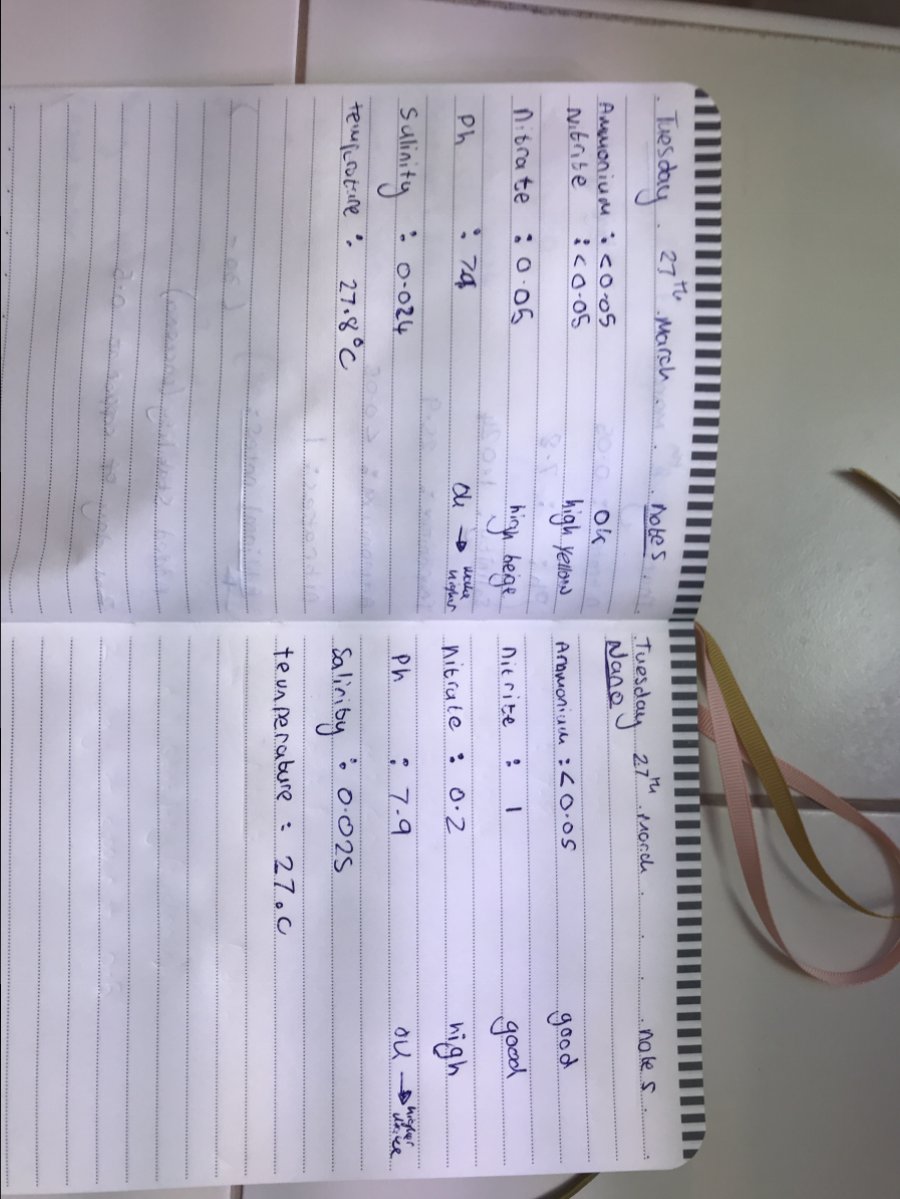 Tuesday. 27th March. notes
Ammonium : <0.05 ok
Nitrite : <0.05 high yellow
Nitrate : 0.05 high beige
Ph : 7.9 ok →
higher
Salinity : 0.024
temperature : 27.8°C
Tuesday 27th March. notes.
Nano
Ammonium : <0.05 good
nitrite : 1 good
nitrate : 0.2 high
Ph : 7.9 ok → higher
Salinity : 0.025
temperature : 27.c